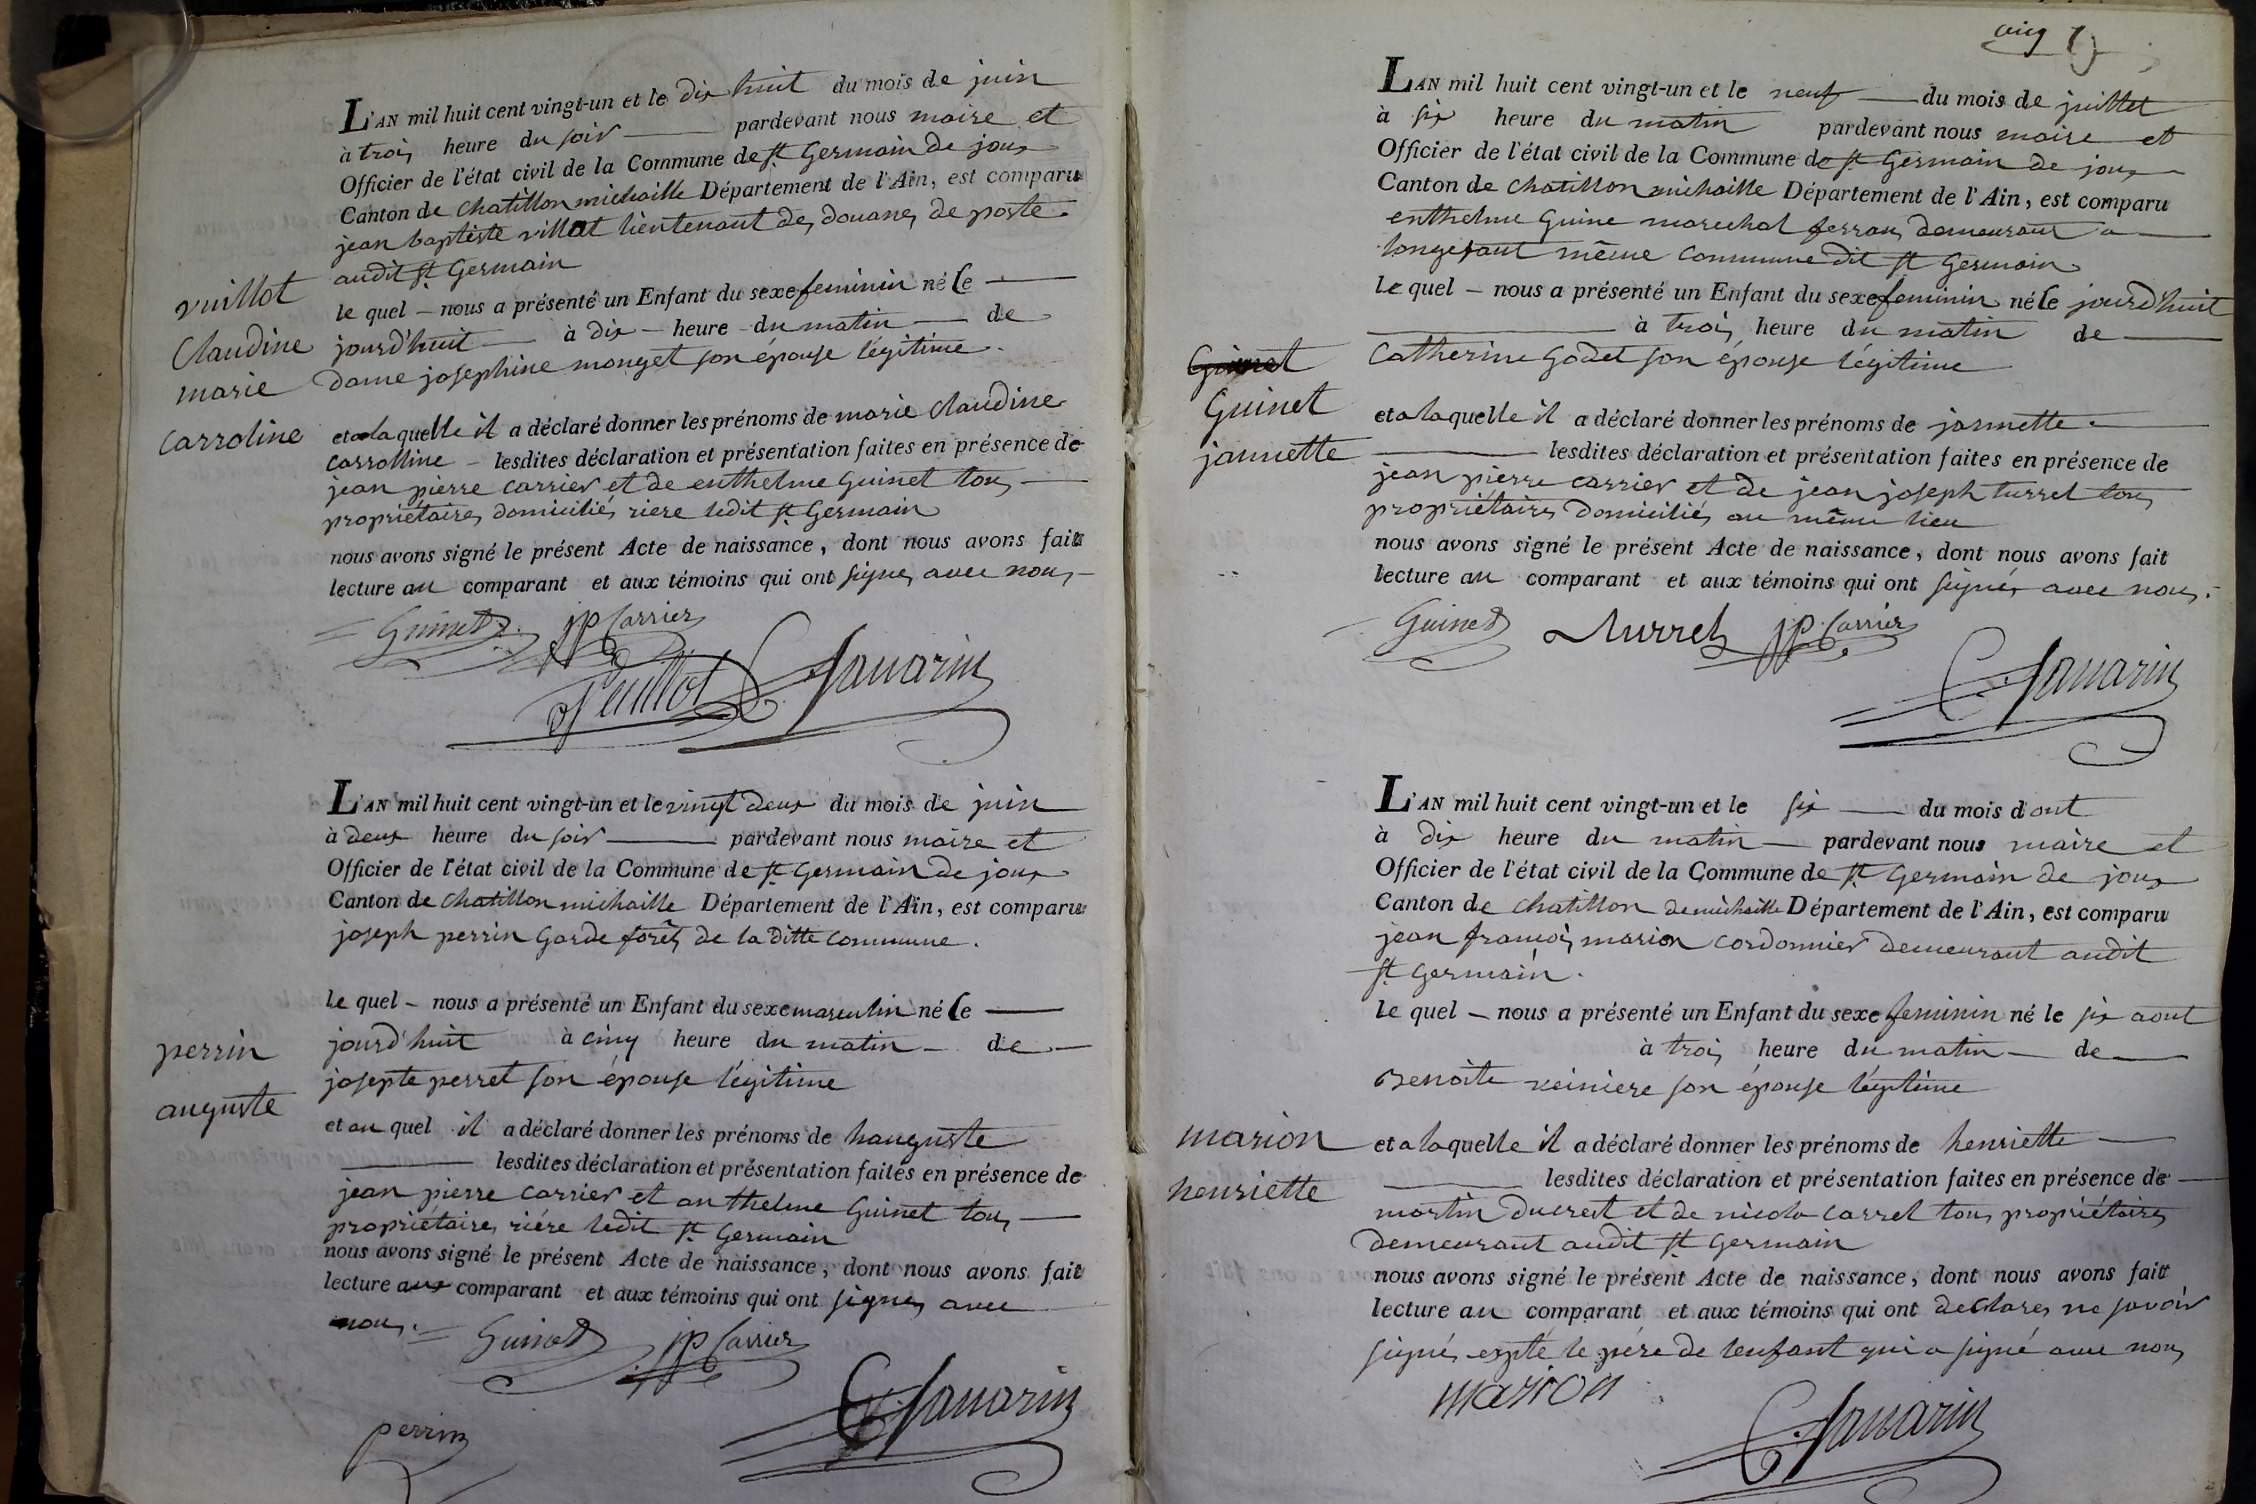 L'AN mil huit cent vingt-un et le dix huit du mois de juin
à trois heure du soir pardevant nous maire et
Officier de l'état civil de la Commune de St Germain de joux
Canton de chatillon michaille Département de l'Ain, est comparu
jean baptiste villot lieutenant des douanes de poste
audit St Germain
vuillot
le quel – nous a présenté un Enfant du sexe feminin né le
Claudine
jourd'huit à dix – heure du matin de
marie
dame josephine monget son épouse légitime.
carroline
et a laquelle il a déclaré donner les prénoms de marie Claudine
carrolline – lesdites déclaration et présentation faites en présence de
jean pierre carrier et de enthelme Guinet tous
propriétaires domiciliés riere ledit St Germain
nous avons signé le présent Acte de naissance, dont nous avons fait
lecture au comparant et aux témoins qui ont signes avec nous
Guinet jp Carrier
Vuillot Savarin
L'AN mil huit cent vingt-un et le vingt deux du mois de juin
à deux heure du soir pardevant nous maire et
Officier de l'état civil de la Commune de St Germain de joux
Canton de chatillon michaille Département de l'Ain, est comparu
joseph perrin Garde forêts de la ditte commune.
le quel – nous a présenté un Enfant du sexe masculin né le
perrin
jourd'huit à cinq heure du matin – de
josepte perret son épouse légitime
auguste
et au quel il a déclaré donner les prénoms de hauguste
lesdites déclaration et présentation faites en présence de
jean pierre carrier et anthelme Guinet tous
propriétaires riére ledit St Germain
nous avons signé le présent Acte de naissance, dont nous avons fait
lecture aux comparant et aux témoins qui ont signes avec
nous.
Guinet jp Carrier
Savarin
perrin
cinq
L'AN mil huit cent vingt-un et le neuf du mois de juillet
à six heure du matin pardevant nous maire et
Officier de l'état civil de la Commune de St Germain de joux
Canton de chatillon michaille Département de l'Ain, est comparu
enthelme Guine marechal ferran demeurant a
longefaut même commune dit St Germain
le quel – nous a présenté un Enfant du sexe feminin né le jourd'huit
à trois heure du matin de
Guinet
Catherine Godet son épouse légitime
Guinet
et a laquelle il a déclaré donner les prénoms de jannette.
jannette
lesdites déclaration et présentation faites en présence de
jean pierre carrier et de jean joseph turrel tous
propriétaires domiciliés au même lieu
nous avons signé le présent Acte de naissance, dont nous avons fait
lecture au comparant et aux témoins qui ont signés avec nous.
Guinet Turrel jp Carrier
Savarin
L'AN mil huit cent vingt-un et le six du mois d'out
à dix heure du matin – pardevant nous maire et
Officier de l'état civil de la Commune de St Germain de joux
Canton de chatillon de michaille Département de l'Ain, est comparu
jean francois marion cordonnier demeurant audit
St Germain.
le quel – nous a présenté un Enfant du sexe feminin né le six aout
à trois heure du matin – de
Benoite reiniere son épouse légitime
marion
et a laquelle il a déclaré donner les prénoms de henriette
henriette
lesdites déclaration et présentation faites en présence de
martin ducrest et de nicola carrel tous propriétaires
demeurant audit St Germain
nous avons signé le présent Acte de naissance, dont nous avons fait
lecture au comparant et aux témoins qui ont declares ne savoir
signés expté le pére de lenfant qui a signé avec nous
marion
Savarin